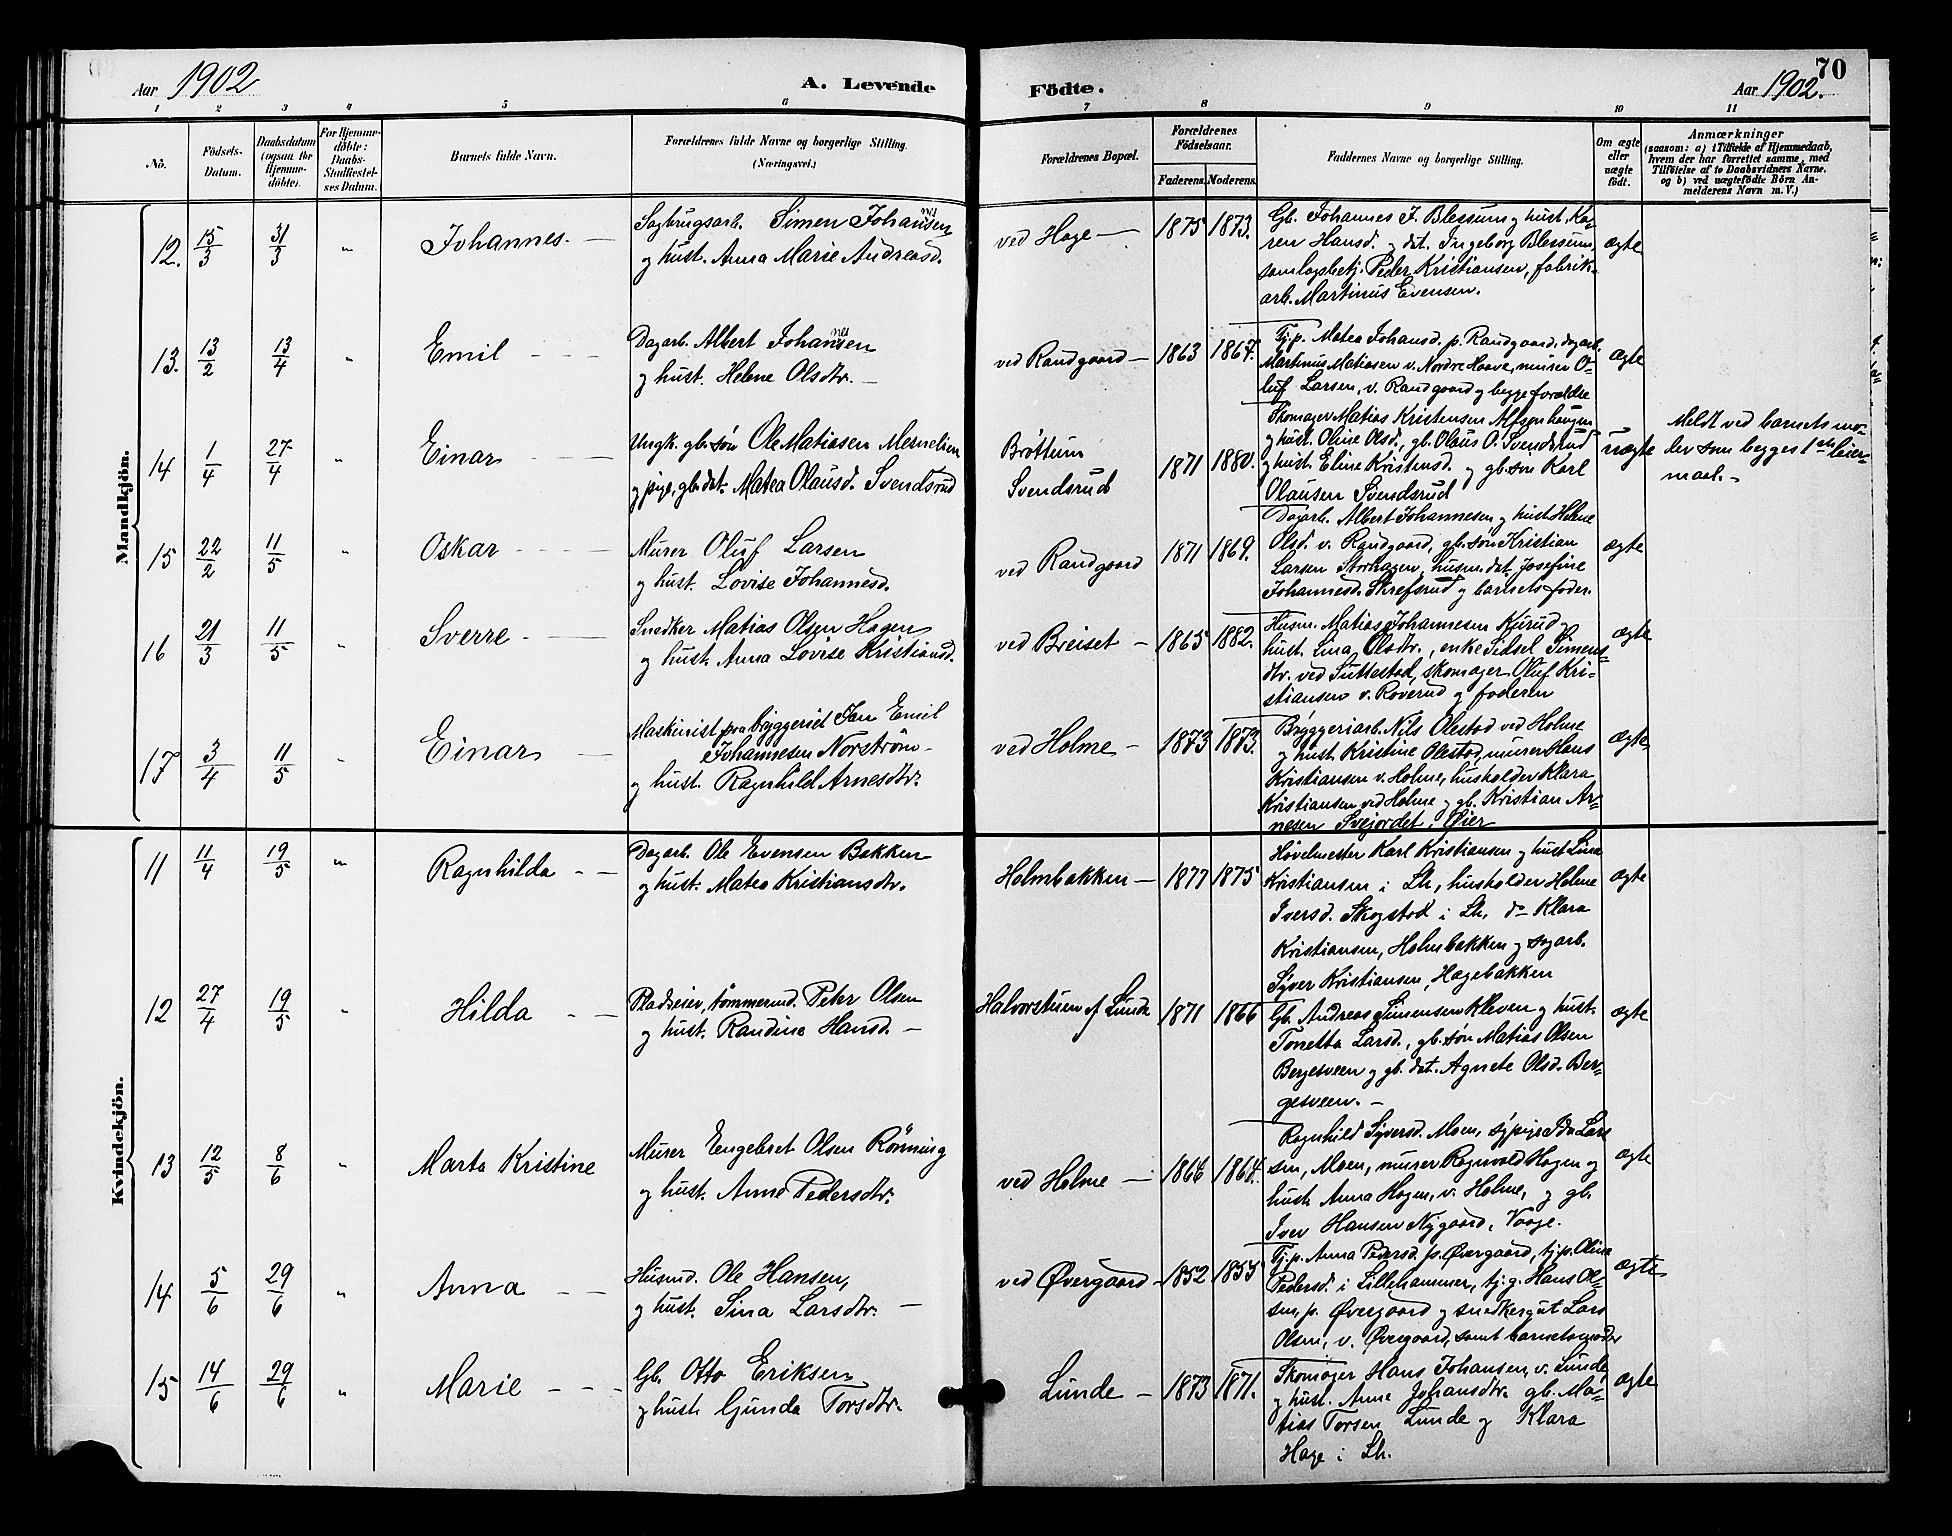 Aar 1902
A. Levende
Födte.
70
Aar 1902.
1 2 3 4 5 6 7 8 9 10 11
No.
Födsels-
Datum.
Daabsdatum
(ogsaa for
Hjemme-
döbte).
For Hjemme-
döbte:
Daabs-
Stadfæstel-
ses Datum.
Barnets fulde Navn.
Forældrenes fulde Navne og borgerlige Stilling.
(Næringsvei.)
Forældrenes Bopæl.
Forældrenes
Födselsaar.
Faderens. Moderens.
Faddernes Navne og borgerlige Stilling.
Om ægte
eller
uægte
födt.
Anmærkninger
(saasom: a) i Tilfælde af Hjemmedaab,
hvem der har forrettet samme, med
Tilföielse af to Daabsvidners Navne.
og b) ved uægtefödte Börn An-
melderens Navn m. V.)
Mandkjön.
12. 15/3 31/3 " Johannes.
Sagbrugsarb. Simen Johansen
og hust. Anna Marie Andreasd.
ved Hage 1875 1873.
Gb. Johannes J. Blessum og hust. Ka-
ren Hansd. og dat. Ingeborg Blessum,
samlagsbetj. Peder Kristiansen, fabrik-
arb. Martinus Evensen.
ægte
13. 13/2 13/4 " Emil
Dagarb. Albert Johannesen
og hust. Helene Olsdtr.
ved Randgaard 1863 1864.
Tj.p. Matea Johansd. p. Randgaard, dagarb.
Martinus Matiasen v. Nordre Haave, murer O-
luf Larsen, v. Randgaard og begge forældre
ægte
14 1/4 27/4 " Einar
Ungk. gb. søn Ole Matiasen
og pige, gb. dat. Matea Olausd. Svendsrud
Brøttum
Svendsrud
1871 1880.
Skomager Matias Kristensen
og hust. Oline Olsd., gb. Olaus O. Svendsrud
og hust. Eline Kristensd. og gb. søn Karl
Olausen Svendsrud
uægte
Meldt ved barnets mo-
der som begges 1ste leier-
maal.
15 22/2 11/5 " Oskar
Murer Oluf Larsen
og hust. Lovise Johannesd.
ved Randgaard 1871 1869.
Dagarb. Albert Johannesen og hust. Helene
Olsd. v. Randgaard, gb. søn Kristian
Larsen Storhagen, husm. dat. Josefine
Johannesd. Skrefsrud og barnets fader.
ægte
16 21/3 11/5 " Sverre
Snedker Matias Olsen Hagen
og hust. Anna Lovise Kristiansd.
ved Breiset 1865 1882.
Husm. Matias Johannesen Kurud og
hust. Lina Olsdtr., enke Sidsel Simens-
dtr. ved Suttestad, skomager Oluf Kri-
stiansen v. Røverud og faderen
ægte
17 3/4 11/5 " Einar
Maskinist paa bryggeriet Jan Emil
Johannesen Norstrøm
og hust. Ragnhild Arnesdtr.
ved Holme 1873 1873.
Bryggeriarb. Nils Olestad ved Holme
og hust. Kristine Olestad, murer Hans
Kristiansen v. Holme, husholder Klara
Kristiansen ved Holme og gb. Kristian Ar-
nesen Svejordet, Øier
ægte
Kvindekjön.
11 11/4 19/5 " Ragnhilda
Dagarb. Ole Evensen Bakken
og hust. Matea Kristiansdtr.
Holmbakken 1877 1875
Høvelmester Karl Kristiansen og hust Lina
Kristiansen i Lh, husholder Helene
Iversd. Skogstad i Lh, do Klara
Kristiansen, Holmbakken og sagarb.
Syver Kristiansen, Hagebakken
ægte
12 27/4 19/5 " Hilda
Pladseier, tømmermd. Peter Olsen
og hust. Randine Hansd.
Halvorstuen af Lunde 1871 1866
Gb. Andreas Simensen Kleven og hust.
Tonetta Larsd., gb. søn Matias Olsen
Bergesveen og gb. dat. Agnete Olsd. Ber-
gesveen.
ægte
13 12/5 8/6 " Marta Kristine
Murer Engebret Olsen Rönning
og hust. Anne Pedersdtr.
ved Holme 1866 1864.
Ragnhild Syversd. Moen, sypige Ida Lar-
sen, Moen, murer Ragnvald Hagen og
hust. Anna Hagen, v. Holme, og gb.
Iver Hansen Nygaard, Vaage.
ægte
14 5/6 29/6 " Anna
Husmd. Ole Hansen,
og hust. Sina Larsdtr.
ved Øvergaard 1852 1855
Tj.p. Anna Pedersd. p. Øvergaard, tj.p. Olina
Pedersd. i Lillehammer, tj.g. Hans Ol-
sen, p. Øvergaard og snedkergut Lars
Olsen, v. Øvergaard, samt barnets moder
ægte
15 14/6 29/6 " Marie
Gb. Otto Eriksen
og hust. Gunda Torsdtr.
Lunde 1873 1871.
Skomager Hans Johansen v. Lunde,
og hust. Anne Johansdtr. gb. Ma-
tias Torsen Lunde og Klara
Hage i Lh.
ægte